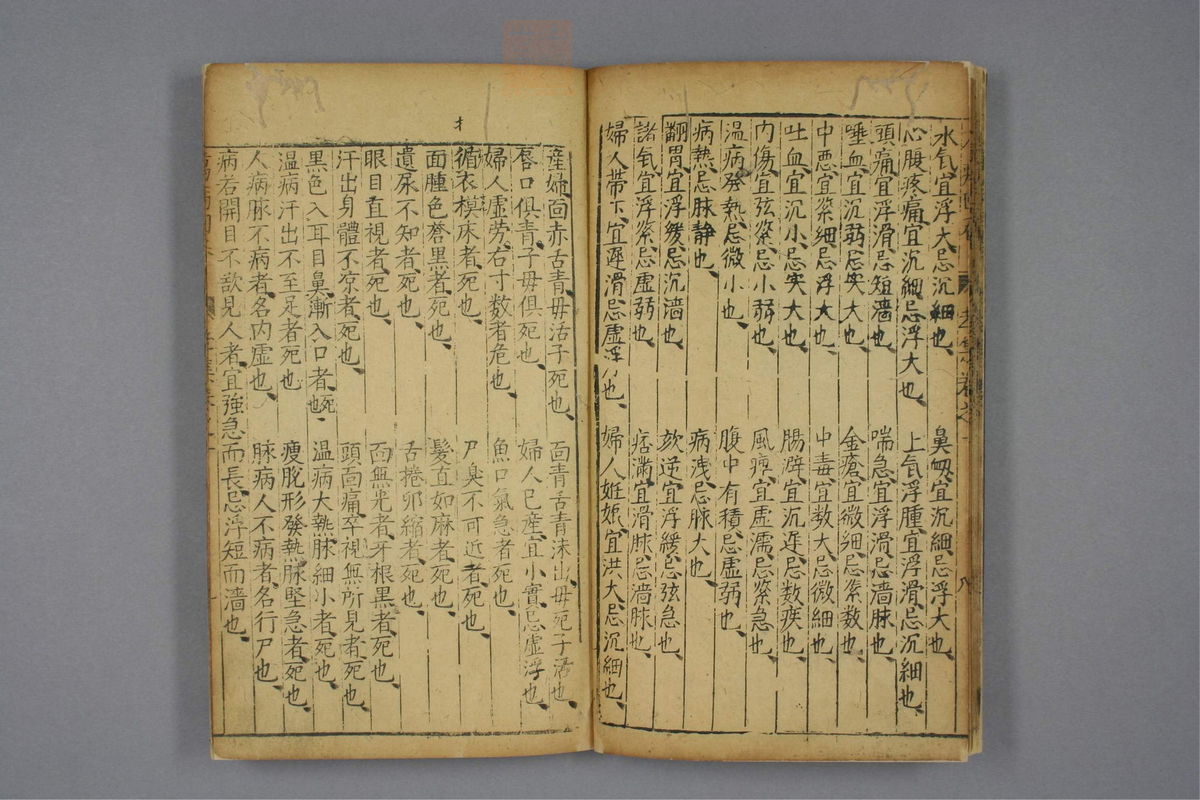 水氣宜浮大忌沉細也 鼻衂宜沉細忌浮大也
心腹疼痛宜沉細忌浮大也 上氣浮腫宜浮滑忌沉細也
頭痛宜浮滑忌短濇也 喘急宜浮滑忌濇脉也
唾血宜沉弱忌实大也 金瘡宜微細忌緊數也
中悪宜緊細忌浮大也 中毒宜数大忌微細也
吐血宜沉小忌实大也 腸澼宜沉遲忌数疾也
内傷宜弦緊忌小弱也 風痺宜虛濡忌緊急也
温病發熱忌微小也 腹中有積忌虛弱也
病熱忌脉静也 病洩忌脉大也
翻胃宜浮緩忌沉濇也 欬逆宜浮緩忌弦急也
諸氣宜浮緊忌虛弱也 痞滿宜滑脉忌濇脉也
婦人帶下宜遲滑忌虛浮也 婦人姙娠宜洪大忌沉細也
產婦面赤舌青毋活子死也 面青舌青沫出毋死子活也
唇口俱青子毋俱死也 婦人已產宜小實忌虛浮也
婦人虛勞右寸数者危也 魚口氣急者死也
循衣模床者死也 尸臭不可近者死也
面腫色蒼黑者死也 髮直如麻者死也
遺尿不知者死也 舌捲卵縮者死也
眼目直視者死也 面無光者牙根黑者死也
汗出身體不凉者死也 頭面痛卒視無所見者死也
黑色入耳目鼻漸入口者死也 温病大熱脉細小者死也
温病汗出不至足者死也 瘦脫形發熱脉堅急者死也
人病脉不病者名内虛也 脉病人不病者名行尸也
病若開目不欲見人者宜強急而長忌浮短而濇也